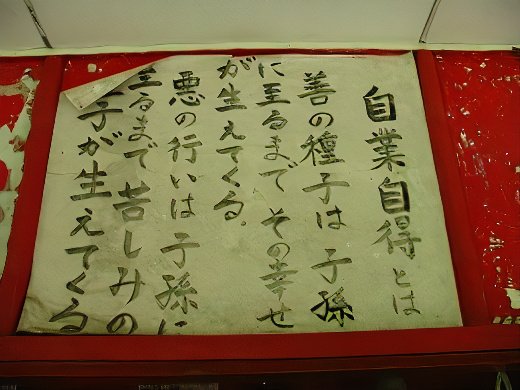 自業自得とは
善の種子は子孫
に至るまでその幸せ
が生えてくる。
悪の行いは子孫に
至るまで苦しみの
子が生えてくる